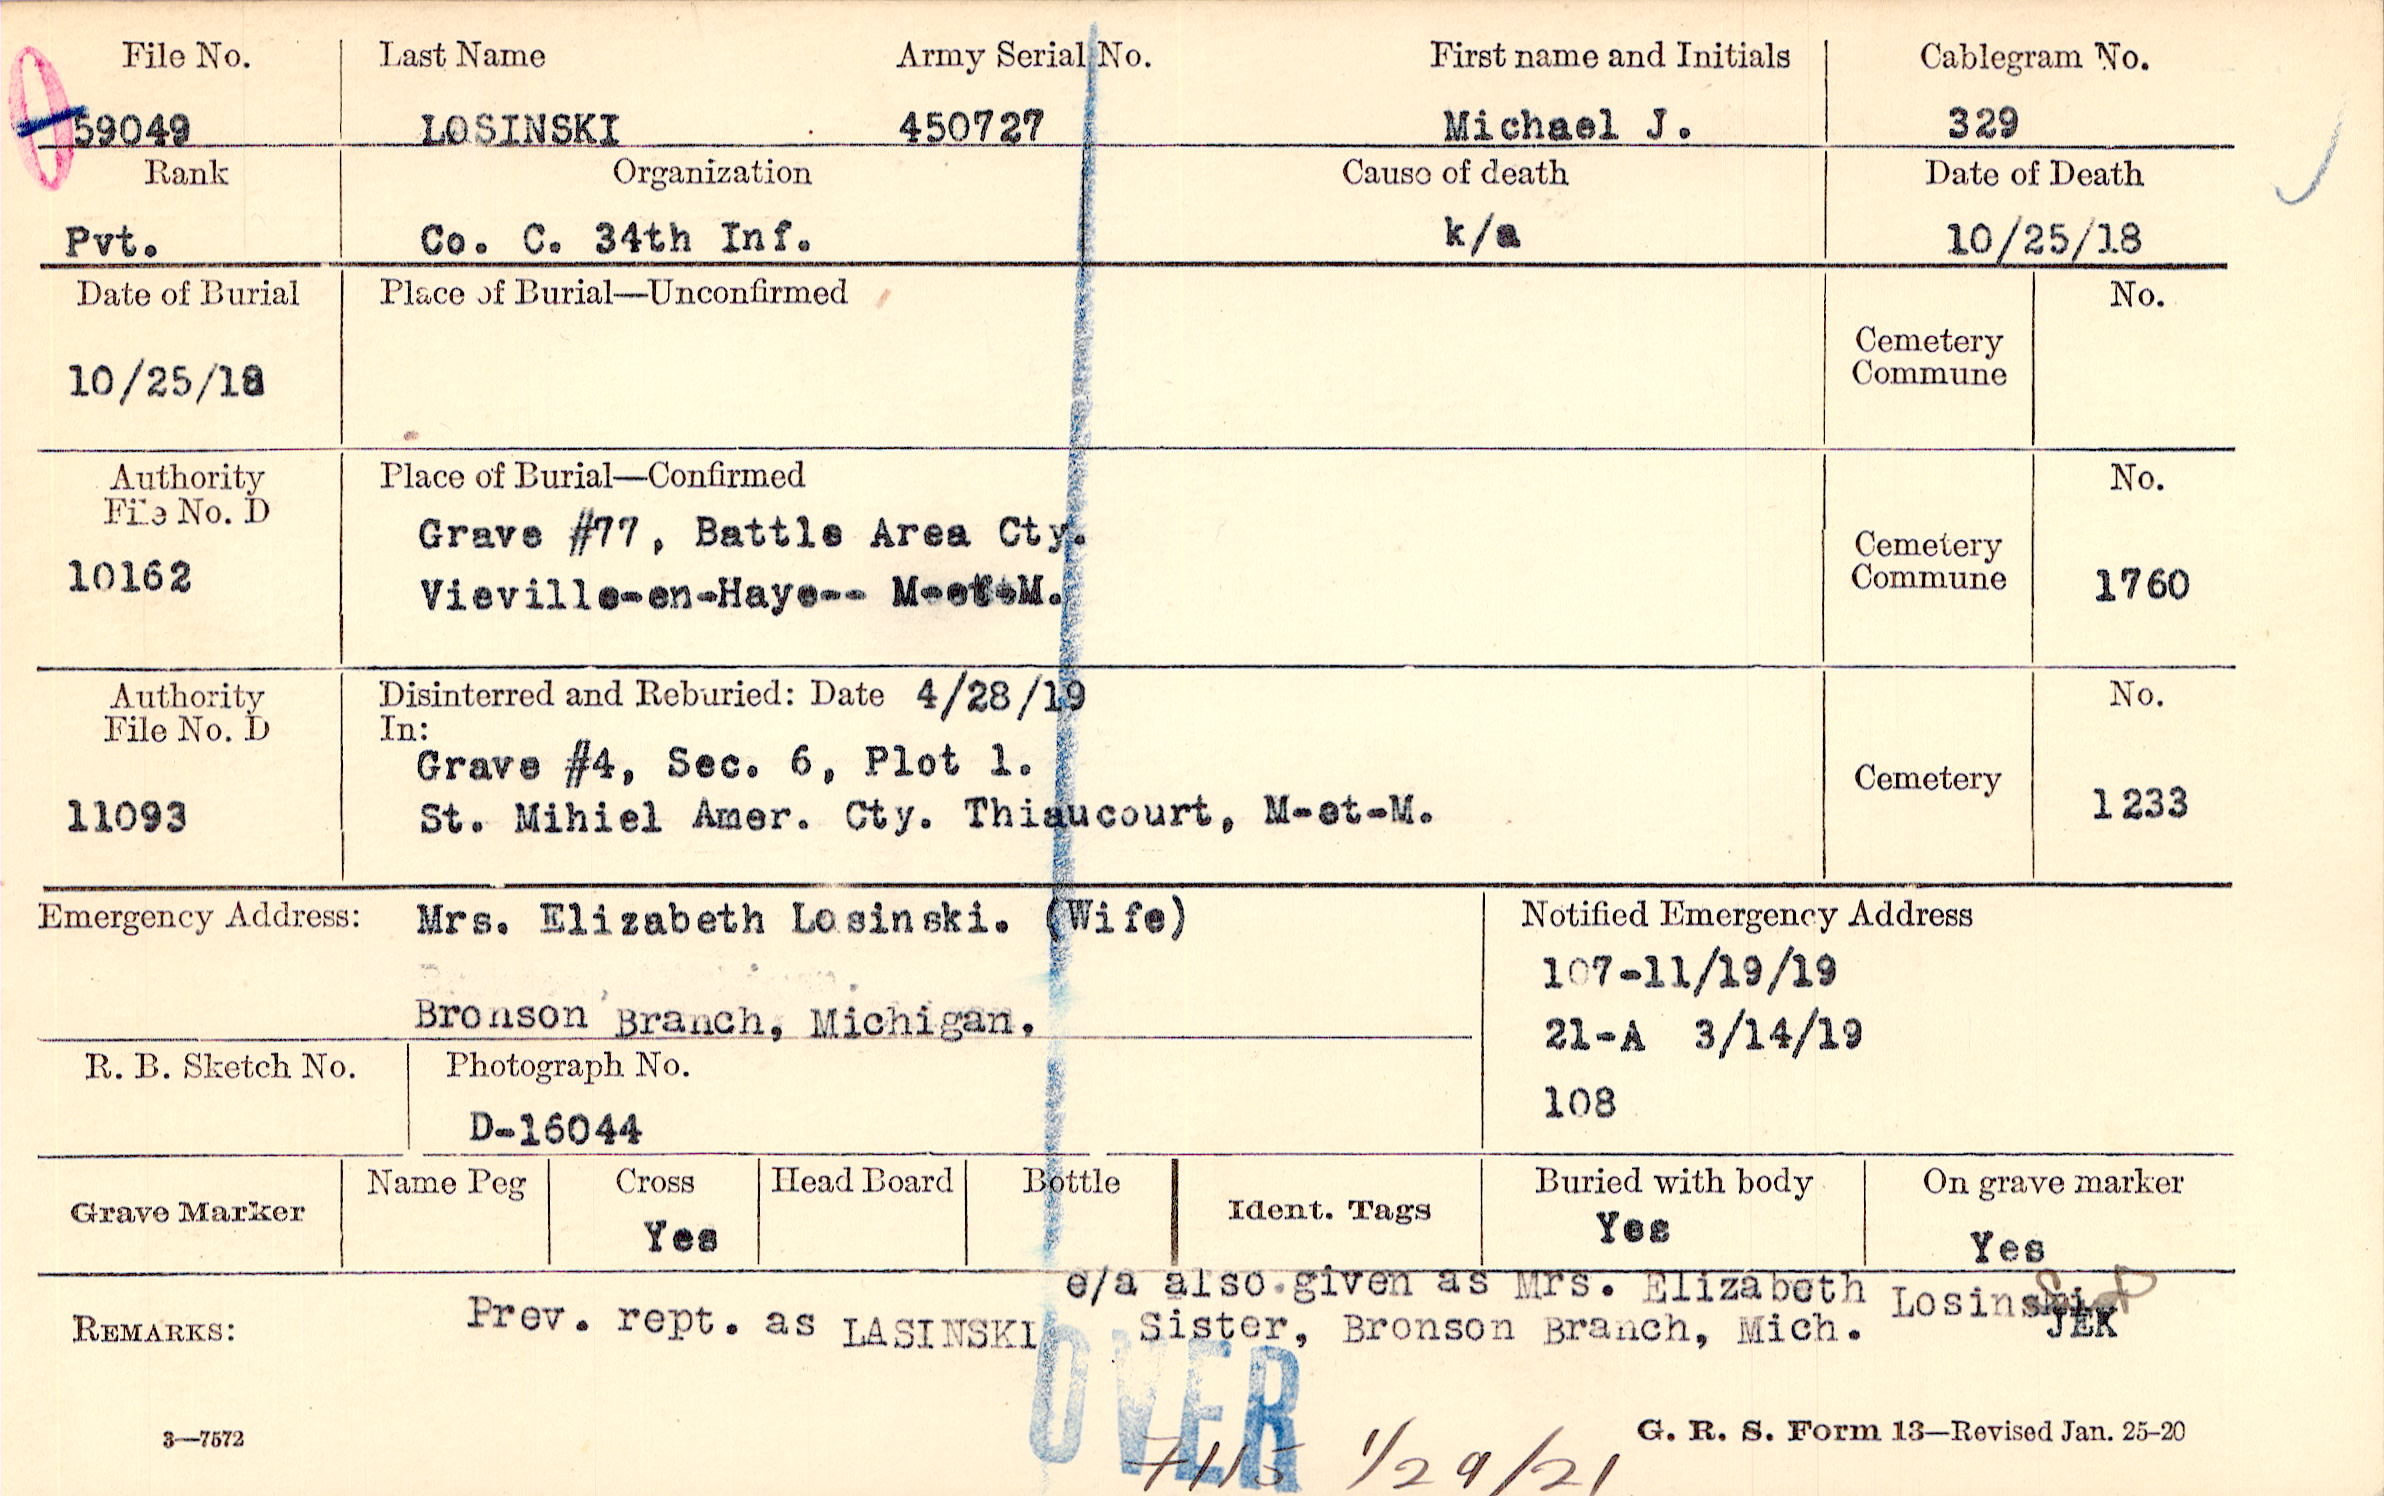 File No. Last Name Army Serial No. First name and Initials Cablegram No.
59049 LOSINSKI 450727 Michael J. 329
Rank Organization Cause of death Date of Death
Pvt. Co. C. 34th Inf. k/a 10/25/18
Date of Burial Place of Burial—Unconfirmed No.
Cemetery
Commune
10/25/18
Authority Place of Burial—Confirmed No.
File No. D
Grave #77, Battle Area Cty.
Cemetery
10162 Commune 1760
Vieville-en-Haye-- M-et-M.
Authority Disinterred and Reburied: Date 4/28/19 No.
File No. D In:
Grave #4, Sec. 6, Plot 1.
Cemetery
11093 St. Mihiel Amer. Cty. Thiaucourt, M-et-M. 1233
Emergency Address: Mrs. Elizabeth Losinski. (Wife) Notified Emergency Address
107-11/19/19
Bronson Branch, Michigan.
21-A 3/14/19
R. B. Sketch No. Photograph No.
108
D-16044
Grave Marker Name Peg Cross Head Board Bottle Ident. Tags Buried with body On grave marker
Yes Yes Yes
e/a also given as Mrs. Elizabeth Losinski
REMARKS: Prev. rept. as LASINSKI Sister, Bronson Branch, Mich. JEK
OVER
3—7572 G. R. S. Form 13—Revised Jan. 25-20
7115 1/29/21